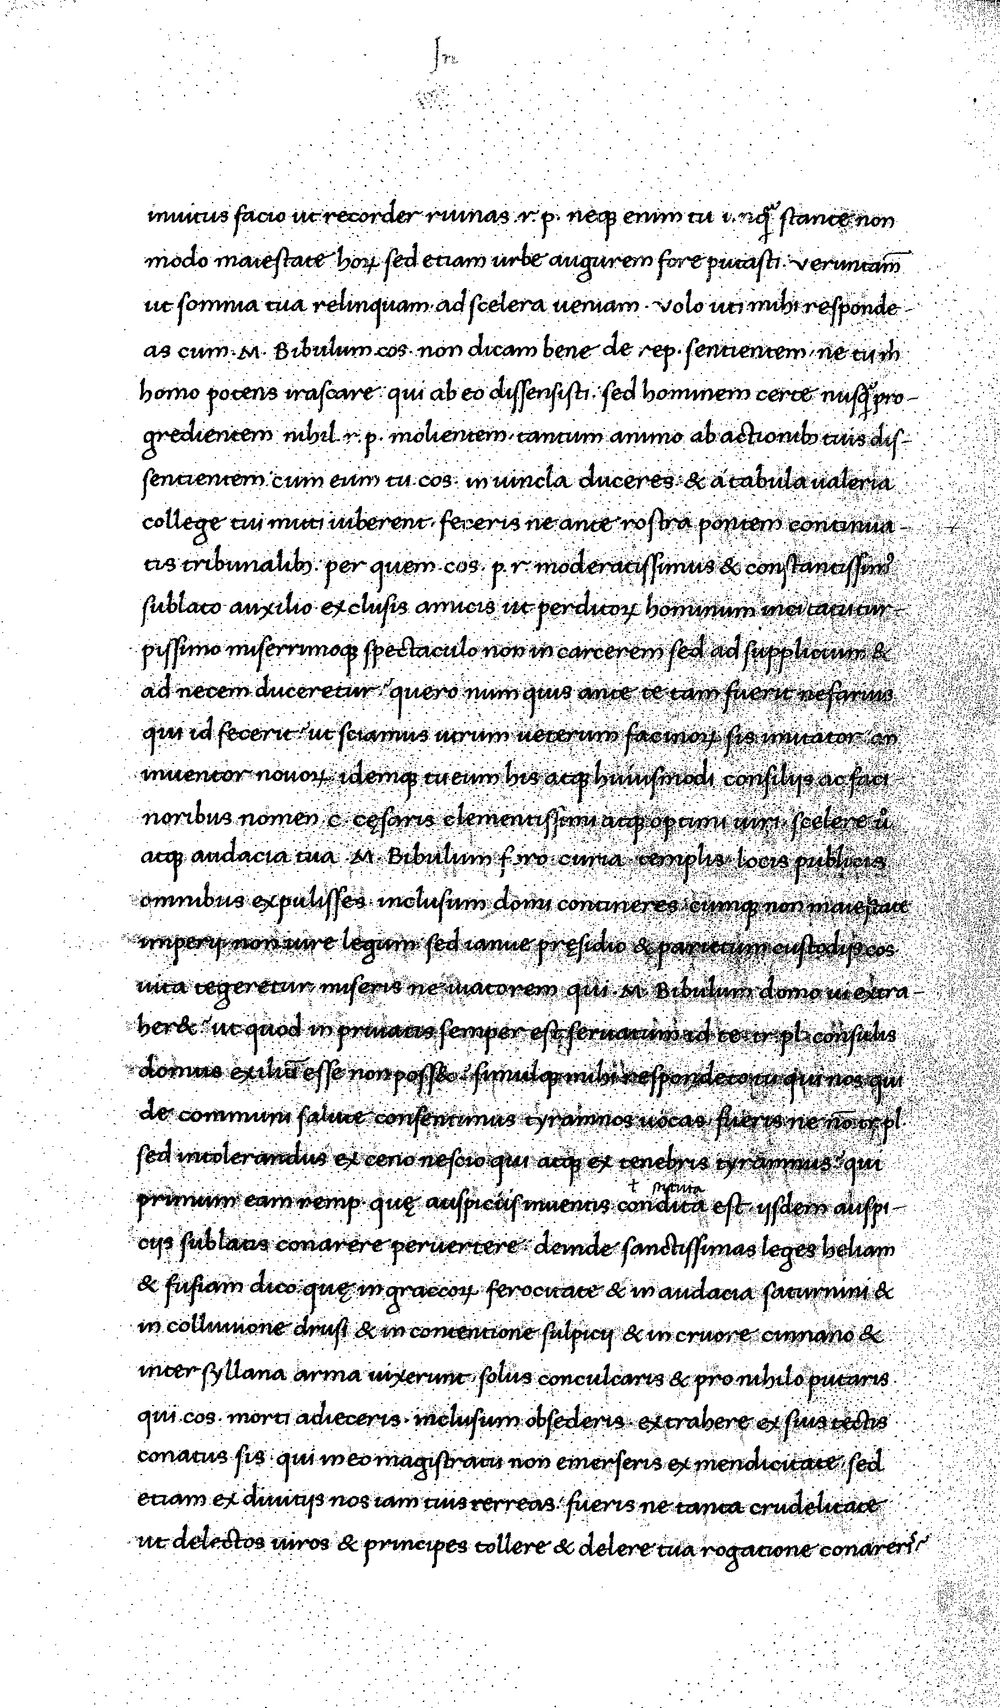 In
inuitus facio ut recorder ruinas .r.p. neq; enim tu stante non
modo maiestate hoꝝ sed etiam urbe augurem fore putasti. Veruntam̄
ut somnia tua relinquam ad scelera ueniam. Volo uti mihi responde-
as cum .M. Bibulum cos. non dicam bene de rep. sentientem. ne tu m̄
homo potens irascare qui ab eo dissensisti. sed hominem certe nusq̃ pro-
gredientem nihil .r.p. molientem. tantum animo ab actionib; tuis dis-
sentientem cum eum tu cos. in uincla duceres & a tabula ualeria
college tui muti iuberent. feceris ne ante rostra pontem continua-
tis tribunalib;. per quem cos. p.r. moderatissimus & constantissim᷒
sublato auxilio exclusis amicis ui perditoꝝ hominum incitata tur-
pissimo miserrimoq; spectaculo non in carcerem sed ad supplicium &
ad necem duceretur. quero num quis ante te tam fuerit nefarius
qui id fecerit. ut sciamus utrum ueterum facinoꝝ sis imitator an
inuentor nouoꝝ. idemq; tu eum his atq; huiusmodi consilijs ac faci-
noribus nomen .c. cęsaris clementissimi atq; optimi uiri. scelere ũ
atq; audacia tua .M. Bibulum foro curia templis locis publicis
omnibus expulisses. inclusum domi contineres. cumq; non maiestate
imperij non iure legum sed ianue pręsidio & parietum custodijs cos
uita tegeretur. miseris ne uiatorem qui .M. Bibulum domo ui extra-
her&. ut quod in priuatis semper est seruatum id te .tr.pl. consulis
domus exiliũ esse non posset. simulq; mihi respondeto tu qui nos qui
de communi salute consentimus tyrannos uocas. fueris ne nõ tr.pl.
sed intolerandus ex ceno nescio qui atq; ex tenebris tyrannus. qui
primum eam remp. quę auspiciis inuentis condita est. ijsdem auspi-
cijs sublatis conarere peruertere. deinde sanctissimas leges heliam
& fusiam dico quę in graccoꝝ ferocitate & in audacia saturnini &
in colluuione drusi & in contentione sulpicij & in cruore cinnano &
inter syllana arma uixerunt. solus conculcaris & pro nihilo putaris
qui cos. morti adieceris. inclusum obsederis. extrahere ex suis tectis
conatus sis. qui in eo magistratu non emerseris ex mendicitate. sed
etiam ex diuitijs nos iam tuis terreas. fueris ne tanta crudelitate
ut delectos uiros & principes tollere & delere tua rogatione conareris